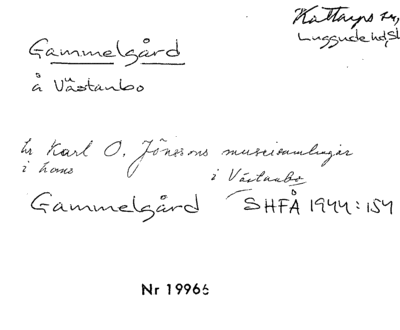 Kattarps sn,
Luggude hd, Sk
Gammelgård
å Västanbo
hr Karl O. Jönssons museisamlingar
i hans i Västanbo
Gammelgård SHFÅ 1944:154
Nr 19966